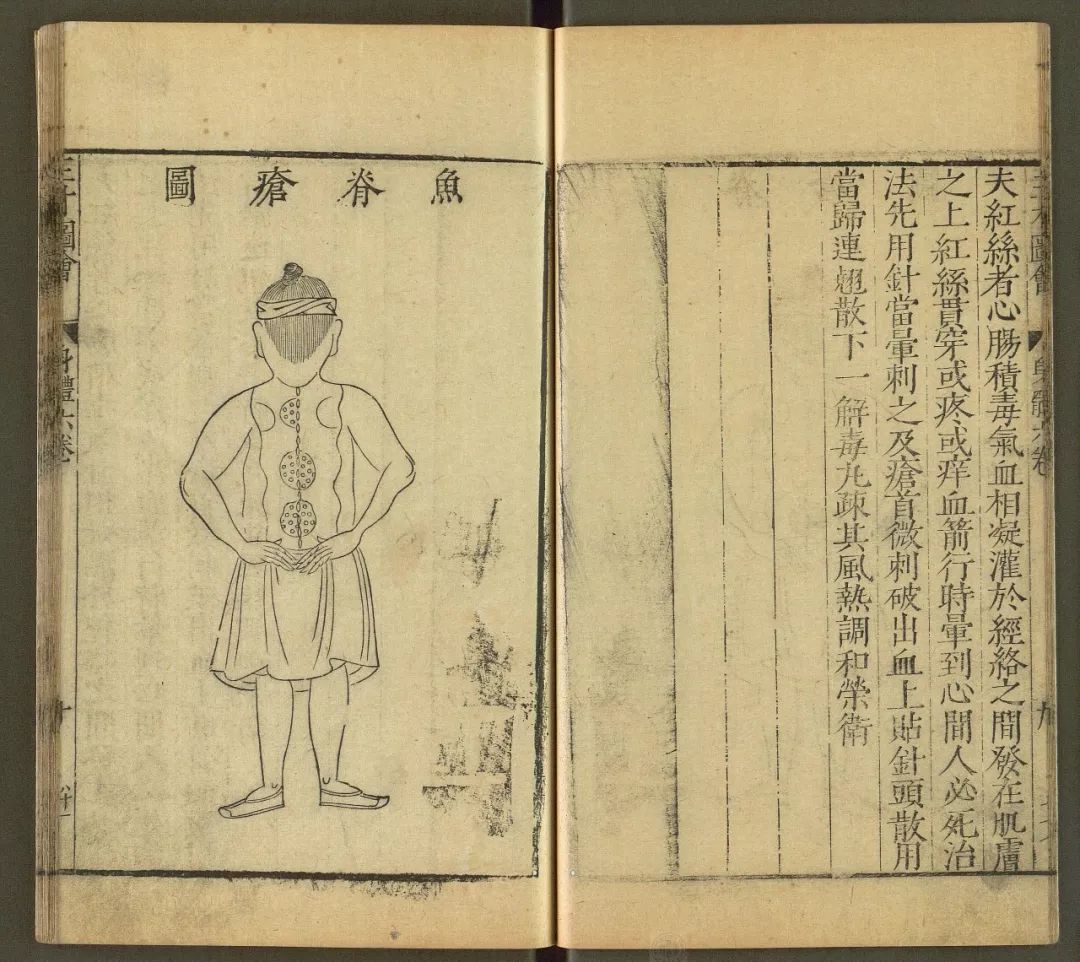 三才圖會
身體六卷
九
夫紅絲者心腸積毒氣血相凝灌於經絡之間發在肌膚
之上紅絲貫穿或疼或痒血箭行時暈到心間人必死治
法先用針當暈刺之及瘡首微刺破出血上貼針頭散用
當歸連翹散下一解毒丸疎其風熱調和榮衛
魚脊瘡圖
三才圖會
身體六卷
十